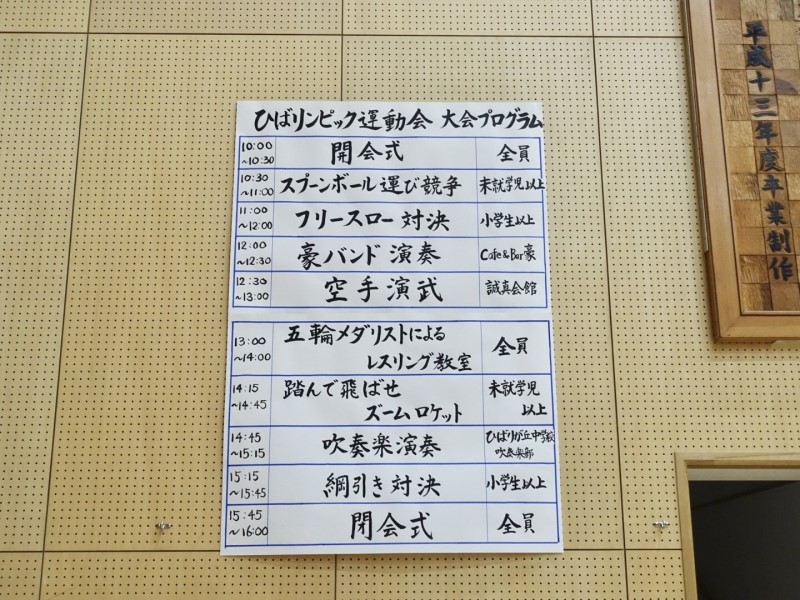 ひばリンピック運動会 大会プログラム
10:00
~10:30
開会式
全員
10:30
~11:00
スプーンボール運び競争
未就学児以上
11:00
~12:00
フリースロー対決
小学生以上
12:00
~12:30
豪バンド演奏
Cafe&Bar豪
12:30
~13:00
空手演武
誠真会館
13:00
~14:00
五輪メダリストによる
レスリング教室
全員
14:15
~14:45
踏んで飛ばせ
ズームロケット
未就学児
以上
14:45
~15:15
吹奏楽演奏
ひばりが丘中学校
吹奏楽部
15:15
~15:45
綱引き対決
小学生以上
15:45
~16:00
閉会式
全員
平成十三年度卒業制作